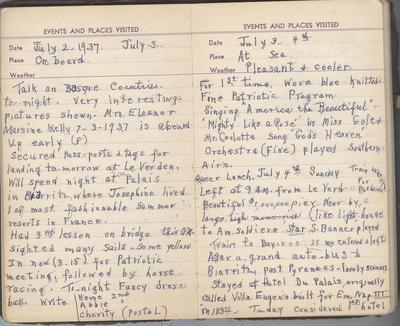 EVENTS AND PLACES VISITED
Date July 2-1937. July 3-
Place On board
Weather
Talk on Basque Countries
to-night. Very interesting
pictures shown. Mrs. Eleanor
Marsine Kelly 7-3-1937 is aboard
Up early (8)
Secured pass-ports & tags for
landing to-morrow at Le Verdon.
Will spend night at Palais
in Biarritz where Josephine lived
1 of most fashionable summer
resorts in France.
Had 3rd lesson on bridge this
sighted many Sails-Some yellow
In now (3.15) for Patriotic
meeting, followed by horse
racing. To-night Fancy dress
ball. Write Home 2nd
Abbie
charity (postal)
EVENTS AND PLACES VISITED
Date July 3 4th
Place At Sea
Weather Pleasant & cooler
For 1st time, Wore blue knitted
Fine Patriotic Program
Singing "America the Beautiful"
"Mighty Like a Rose" by Miss
Mr. Song "Gods Heaven"
Orchestra (fine) played Southern
Airs.
Lunch, July 4th Sunday Train
For
Left at 9 A.M. from Le Verd
Beautiful Near by, a
large, high (like light house
to Am. Soldiers. Star S. Banner played
Train to as we entered & left
After a grand auto-bus to
Biarritz past Pyrenees-lovely scenery.
Stayed at Hotel Du Palais originally
called Villa Eugenie built for Em. Nap. III
in 1854. To-day considered hotel